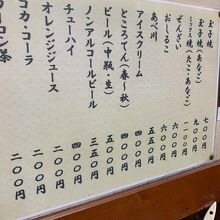 玉子焼 七〇〇円
玉子焼(あなご) 九〇〇円
ミックス焼(たこ・あなご)
ぜんざい 六〇〇円
おしるこ 六〇〇円
あべ川 五五〇円
アイスクリーム
ところてん(春〜秋) 四〇〇円
ビール(中瓶・生) 五〇〇円
ノンアルコールビール 三五〇円
チューハイ 四〇〇円
オレンジジュース 二〇〇円
コカ・コーラ 二〇〇円
ウーロン茶 二〇〇円